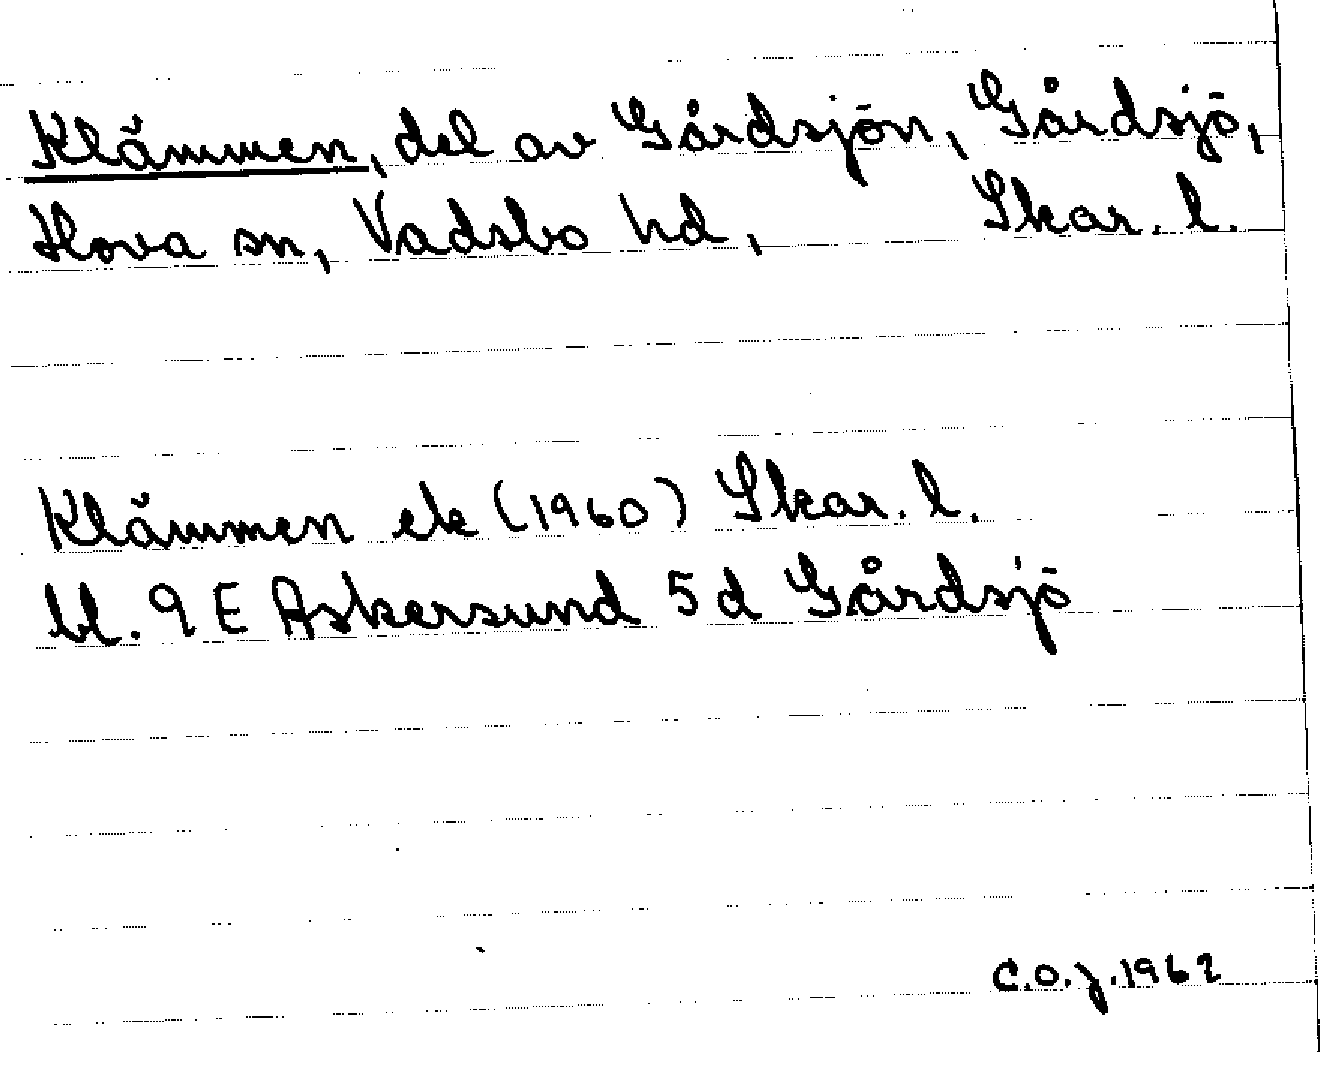 Klämmen, del av Gårdsjön, Gårdsjö,
Hova sn, Vadsbo hd, Skar. l.
Klämmen ek (1960) Skar. l.
bl. 9 E Askersund 5 d Gårdsjö
C.O.J. 1962